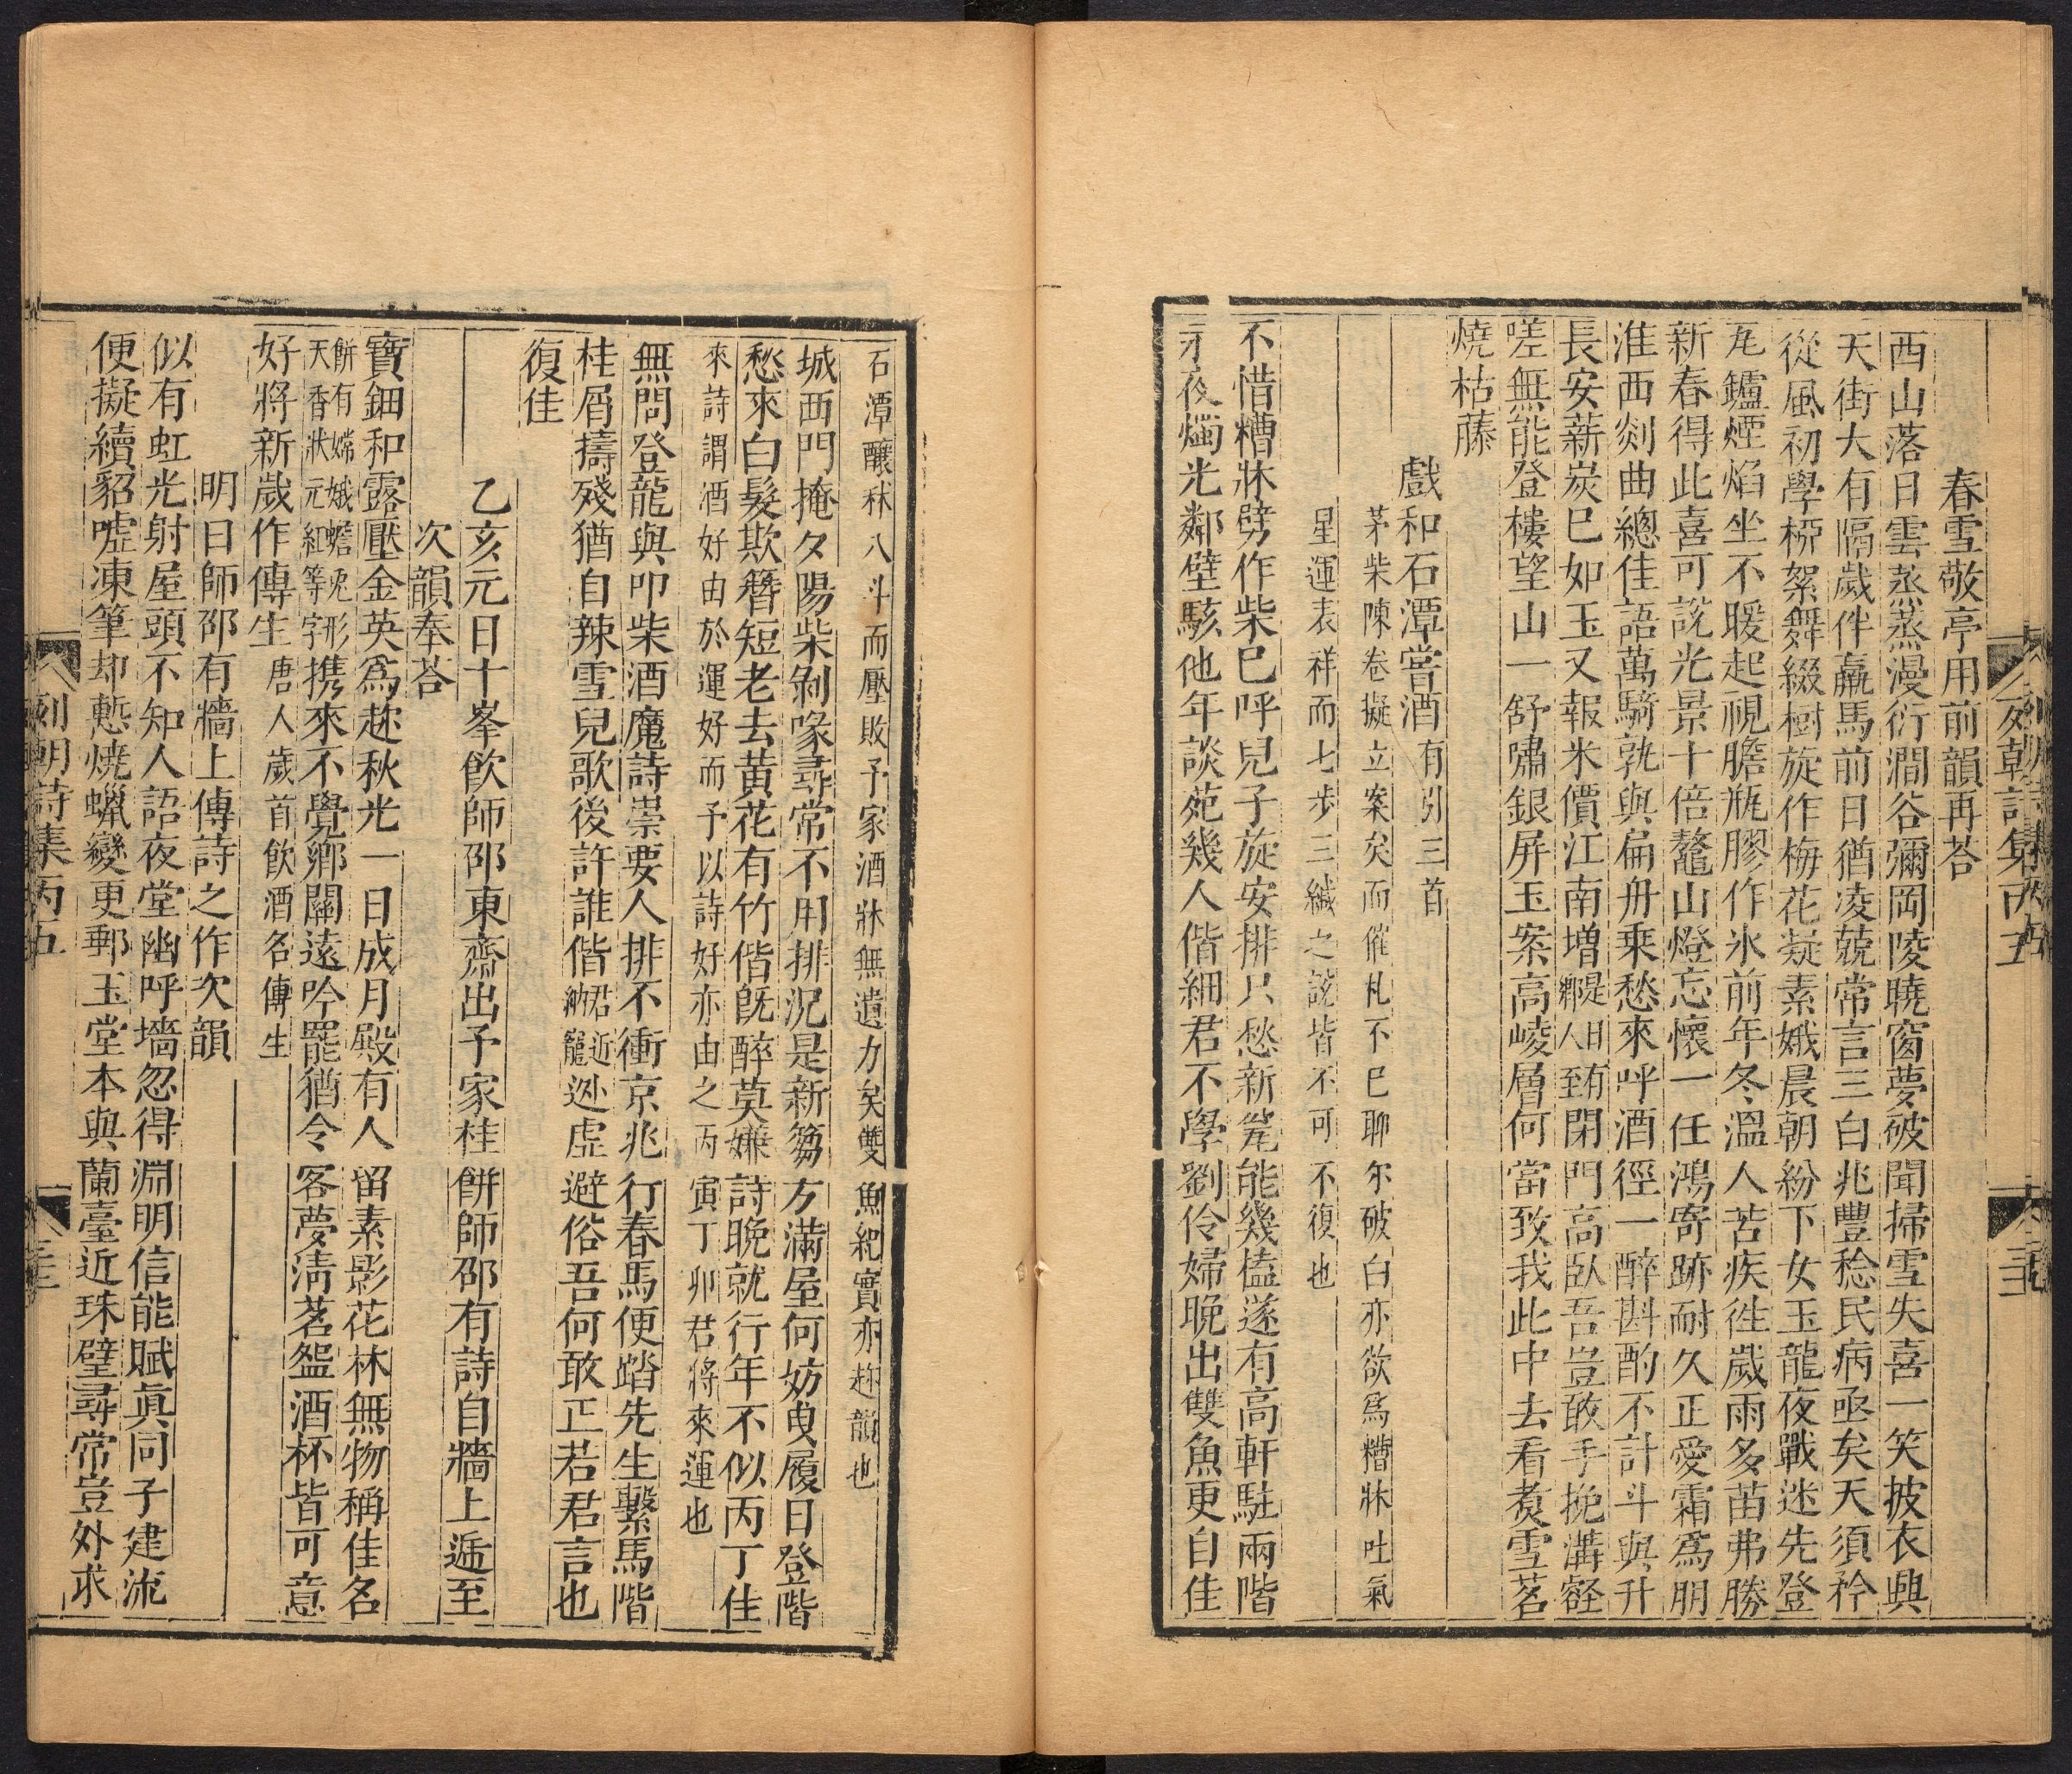 春雪敬亭用前韻再荅
西山落日雲蒸蒸漫衍澗谷彌岡陵曉窗夢破聞掃雪失喜一笑披衣興
天街大有隔歲伴羸馬前日猶凌兢常言三白兆豐稔民病亟矣天須矜
從風初學桺絮舞綴樹旋作梅花凝素娥晨朝紛下女玉龍夜戰迷先登
尫鑪煙焰坐不暖起視膽瓶膠作氷前年冬溫人苦疾徃歲雨多苗弗勝
新春得此喜可說光景十倍鼇山燈忘懷一任鴻寄跡耐久正愛霜爲朋
淮西剡曲總佳語萬騎孰與扁舟乗愁來呼酒徑一醉斟酌不計斗與升
長安薪炭巳如玉又報米價江南增是日有鄉人至閉門高臥吾豈敢手挽溝壑
嗟無能登樓望山一舒嘯銀屏玉案高崚層何當致我此中去看煑雪茗
燒枯藤
戲和石潭嘗酒有引三首
茅柴陳卷擬立案矣而催札不巳聊尓破白亦欲爲糟牀吐氣
星運表祥而七步三緘之說皆不可不復也
不惜糟牀劈作柴巳呼兒子旋安排只愁新篘能幾榼遂有高軒駐兩階
永夜燭光鄰壁駭他年談苑幾人偕細君不學劉伶婦晚出雙魚更自佳
石潭釀秫八斗而壓敗予家酒牀無遺力矣雙魚紀實亦趂韻也
城西門掩夕陽柴剝喙尋常不用排況是新篘方滿屋何妨曳履日登階
愁來白髮欺簪短老去黄花有竹偕旣醉莫嫌詩晚就行年不似丙丁佳
來詩謂酒好由於運好而予以詩好亦由之丙寅丁卯君將來運也
無問登龍與叩柴酒魔詩祟要人排不衝京兆行春馬便踏先生繫馬階
桂屑擣殘猶自辣雪兒歌後許誰偕君近納寵迯虛避俗吾何敢正若君言也
復佳
乙亥元日十峯飮師邵東齋出予家桂餠師邵有詩自牆上遞至
次韻奉荅
寶鈿和露壓金英爲趂秋光一日成月殿有人留素影花林無物稱佳名
餠有嫦娥蟾兎形天香狀元紅等字携來不覺鄉關遠吟罷猶令客夢清茗盌酒杯皆可意
好將新歲作傳生唐人歲首飮酒名傳生
明日師邵有牆上傳詩之作次韻
似有虹光射屋頭不知人語夜堂幽呼墻忽得淵明信能賦眞同子建流
便擬續貂噓凍筆却慙燒蠟變更郵玉堂本與蘭臺近珠璧尋常豈外求
列朝詩集丙五